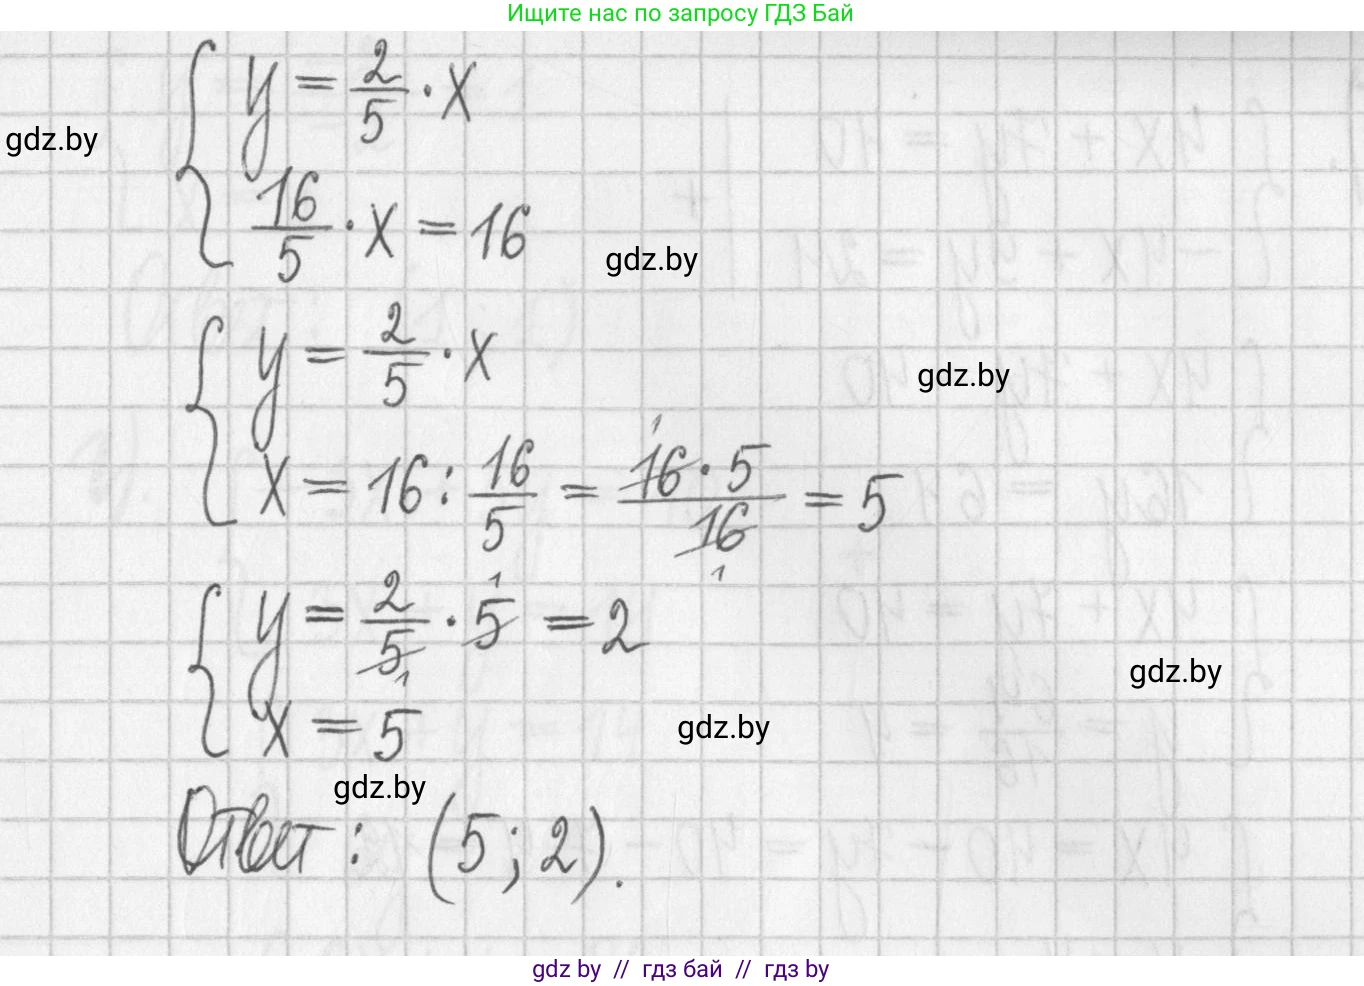 Ищите нас по запросу ГДЗ Бай
y = 2/5 · x
gdz.by
16/5 · x = 16
gdz.by
y = 2/5 · x
gdz.by
x = 16 : 16/5 = 16 · 5 / 16 = 5
1
1
y = 2/5 · 5 = 2
1
1
gdz.by
x = 5
gdz.by
gdz.by
Ответ: (5; 2).
gdz by // гдз бай // гдз by